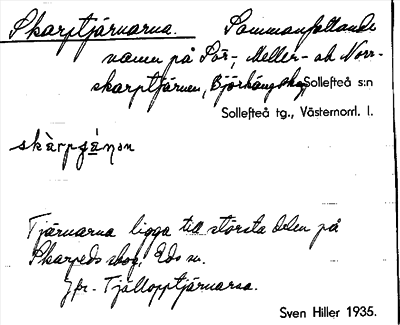 Skarptjärnarna. Sammanfattande
namn på Sör-, Meller- och Norr-
skarptjärnen, Björkängskog Sollefteå s:n
Sollefteå tg., Västernorrl. l.
Tjärnarna ligga till största delen på
Skarpeds skog, Eds sn.
Jfr. Tjällopptjärnarna.
Sven Hiller 1935.